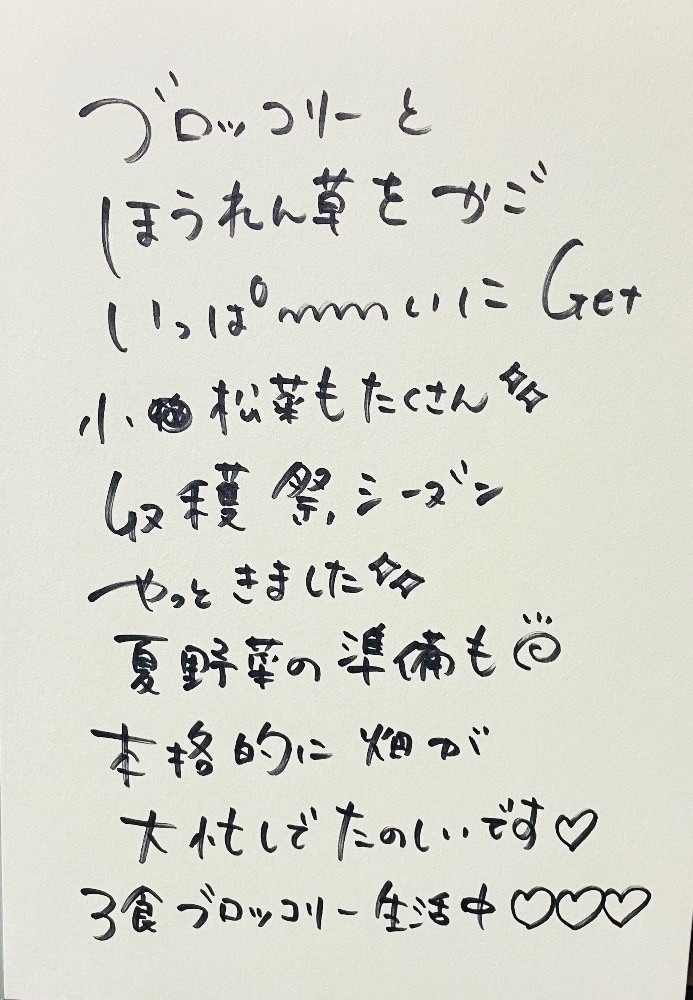 ブロッコリーと
ほうれん草をかご
いっぱ〰〰いにGet
小松菜もたくさん
収穫祭シーズン
やっときました
夏野菜の準備も
本格的に畑が
大忙しでたのしいです♡
3食ブロッコリー生活中♡♡♡